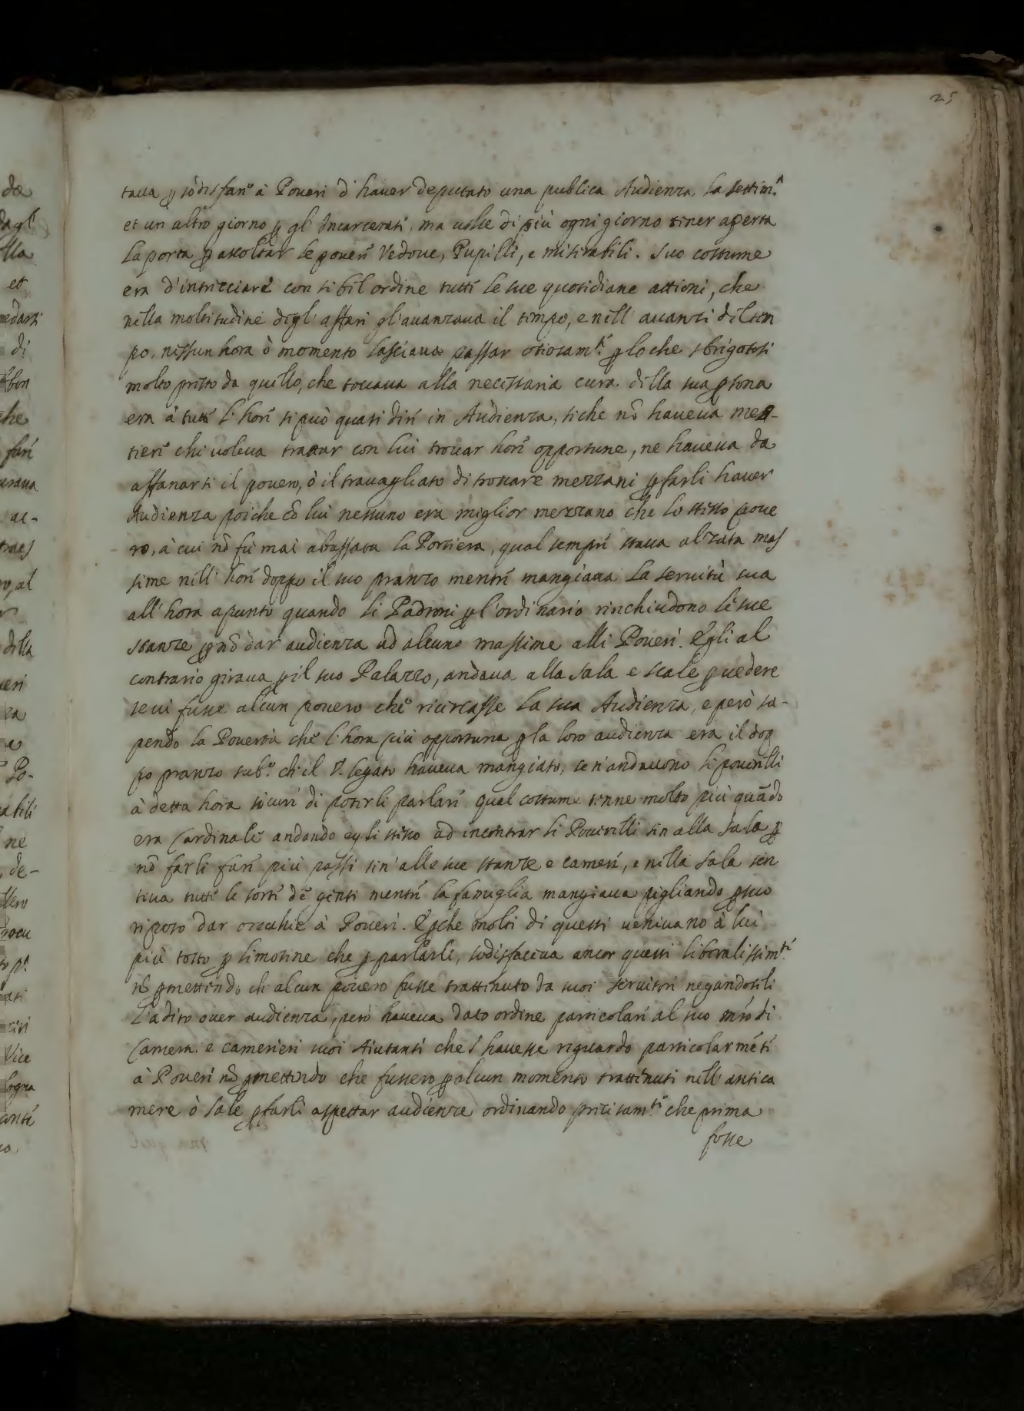 25
taua p sodisfar.e à Poueri d'hauer deputato una publica Audienza la settim.a
et un altro giorno p gl'Incarcerati, ma uolse di più ogni giorno tener aperta
la porta p ascoltar le pouere Vedoue, Pupilli, e miserabili. Suo costume
era d'intrecciare con si bil ordine tutte le sue quotidiane attioni, che
nella moltitudine degl'affari gl'auanzaua il tempo, e nell'auanzi del tem
po, nessun hora ò momento lasciaua passar otiosam.te ploche sbrigatosi
molto presto da quello, che toccaua alla necessaria cura della sua psona
era à tutte l'hore si può quasi dire in Audienza, siche nõ haueua mes-
tiere chi uoleua trattar con lui trouar hore opportune, ne haueua da
affanarsi il pouero, ò il trauagliato di trouare mezzani p farli hauer
Audienza poiche cõ lui nessuno era miglior mezzano che lo stesso poue
ro, à cui nõ fu mai abassata la Portiera, qual sempre staua alzata mas
sime nell'hore doppo il suo pranzo mentre mangiaua la seruitù sua
all'hora apunto quando li Padroni p l'ordinario rinchiudono le sue
stanze p nõ dar audienza ad alcuno massime alli Poueri. Egli al
contrario giraua p il suo Palazzo, andaua alla sala e scale p uedere
se ui fusse alcun pouero che ricircasse la sua Audienza, e però sa-
pendo la Pouertà che l'hora più opportuna p la loro audienza era il dop
po pranzo sub.o ch'il S. legato haueua mangiato, se n'andauono li pouerelli
à detta hora sicuri di poterli parlare qual costume tenne molto più quãdo
era Cardinale andando egli stesso ad incontrar li Pouerelli sin alla sala p
nõ farli fare più passi sin'alle sue stanze e camere, e nella sala sen
tiua tutte le sorti de genti mentre la famiglia mangiaua pigliando p suo
riposo dar orecchie à Poueri. E pche molti di questi ueniuano à lui
più tosto p limosine che p parlarli, sodisfaceua ancor questi liberalissim.te
nõ pmettendo ch'alcun pouero fusse trattenuto da suoi seruitori negandoseli
l'adito ouer audienza, però haueua dato ordine particolare al suo mrõ di
Camera e camerieri suoi Aiutanti che s'hauesse riguardo particolarmẽte
à Poueri nõ pmettendo che fussero p alcun momento trattenuti nell'antica
mere ò sale p farli aspettar audienze ordinando precisam.te che prima
fosse